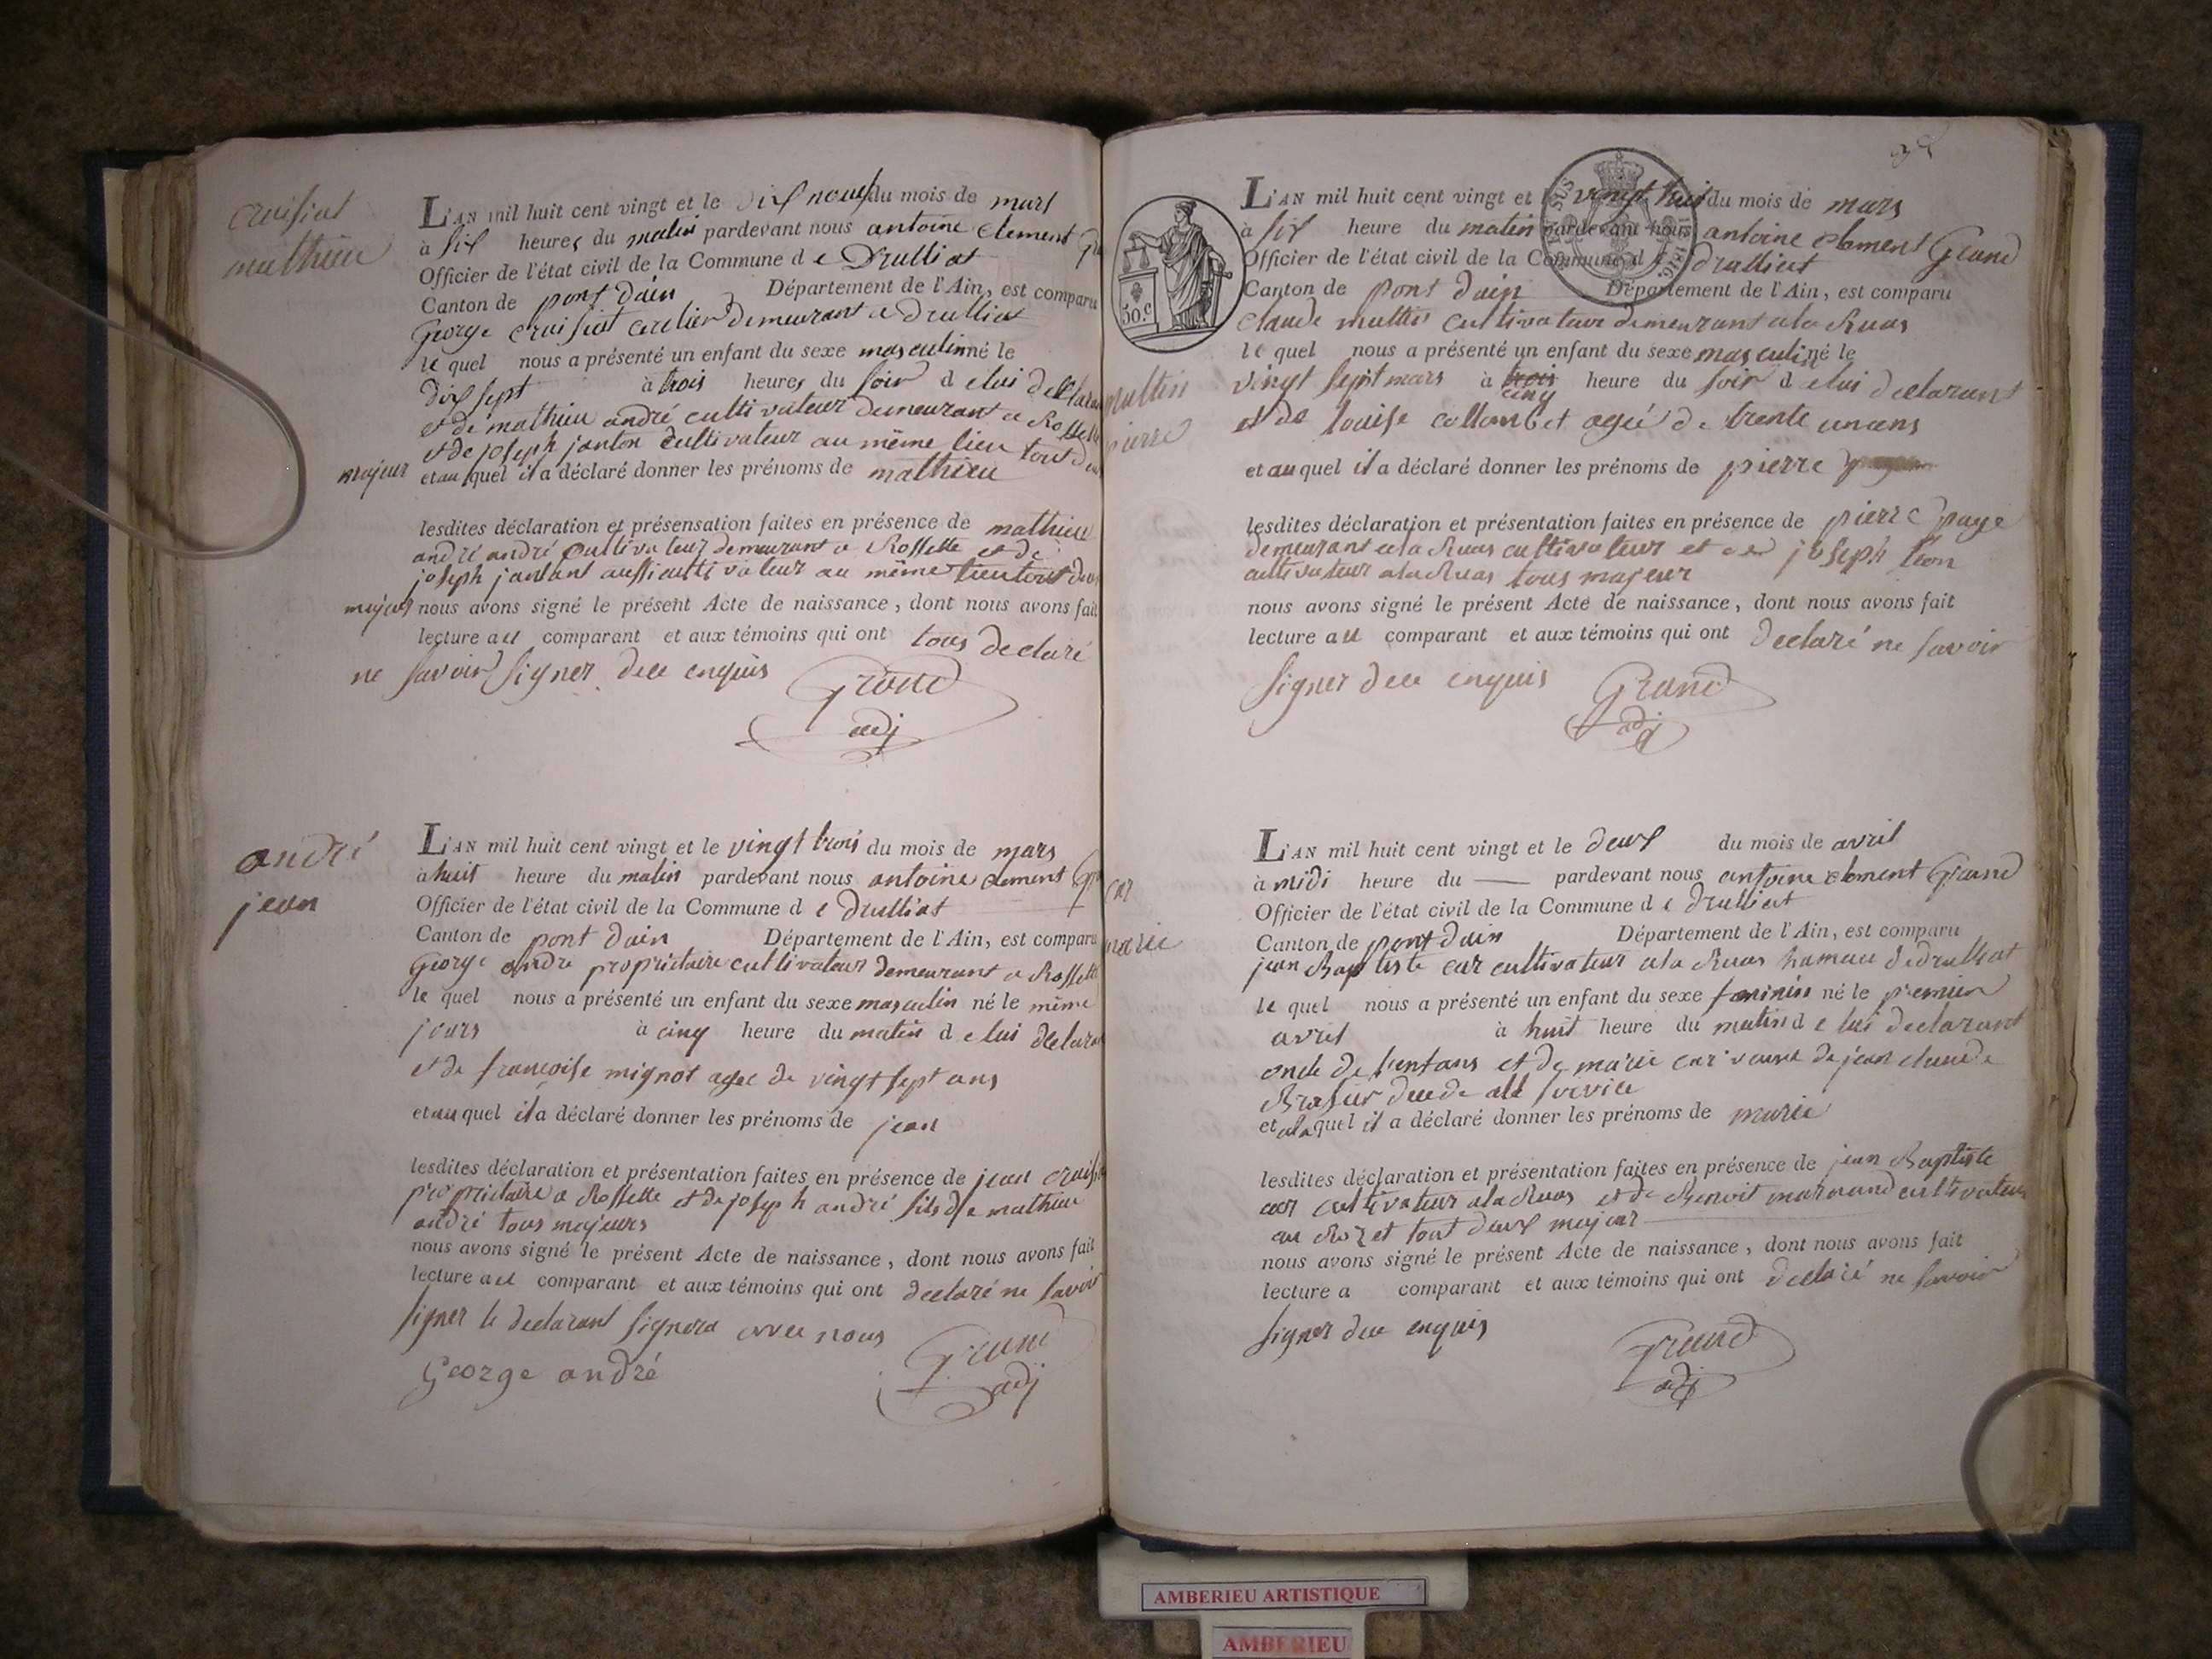 croisiat
mathieu
L'AN mil huit cent vingt et le dix neuf du mois de mars
à six heures du matin pardevant nous antoine clement
Officier de l'état civil de la Commune d e Drulliat
Canton de pont dain Département de l'Ain, est comparu
George croisiat demeurant a drulliat
le quel nous a présenté un enfant du sexe masculin né le
dix sept à trois heures du soir d e lui declarant
et de mathieu andré cultivateur demeurant a Rossette
et de joseph janton cultivateur au même lieu tout deux
majeur et au quel il a déclaré donner les prénoms de mathieu
lesdites déclaration et présensation faites en présence de mathieu
andré andré cultivateur demeurant a Rossette et de
joseph jantant aussi cultivateur au même lieu tout deux
majeur nous avons signé le présent Acte de naissance, dont nous avons fait
lecture au comparant et aux témoins qui ont tous declaré
ne savoir signer de ce enquis Grand
adj
andré
jean
L'AN mil huit cent vingt et le vingt trois du mois de mars
à huit heure du matin pardevant nous antoine clement
Officier de l'état civil de la Commune d e Drulliat
Canton de pont dain Département de l'Ain, est comparu
George andré propriétaire cultivateur demeurant a Rossette
le quel nous a présenté un enfant du sexe masculin né le même
jours à cinq heure du matin d e lui declarant
et de francoise mignot agee de vingt sept ans
et au quel il a déclaré donner les prénoms de jean
lesdites déclaration et présentation faites en présence de jean
propriétaire a Rossette et de joseph andré fils de mathieu
andré tous majeurs
nous avons signé le présent Acte de naissance, dont nous avons fait
lecture au comparant et aux témoins qui ont declaré ne savoir
signer le declarant signera avec nous
George andré Grand
adj
35
30.c
L'AN mil huit cent vingt et le vingt huit du mois de mars
à six heure du matin pardevant nous antoine clement Grand
Officier de l'état civil de la Commune d e drulliat
Canton de pont dain Département de l'Ain, est comparu
claude cultivateur demeurant a la Ruas
le quel nous a présenté un enfant du sexe masculin né le
mattin
pierre
vingt sept mars à trois cinq heure du soir d e lui declarant
et de louise collombet agée de trente un ans
et au quel il a déclaré donner les prénoms de pierre
lesdites déclaration et présentation faites en présence de pierre page
demeurant a la Ruas cultivateur et de joseph leon
cultivateur a la Ruas tous majeur
nous avons signé le présent Acte de naissance, dont nous avons fait
lecture au comparant et aux témoins qui ont declaré ne savoir
signer de ce enquis Grand
adj
car
marie
L'AN mil huit cent vingt et le deux du mois de avril
à midi heure du — pardevant nous antoine clement Grand
Officier de l'état civil de la Commune d e drulliat
Canton de pont dain Département de l'Ain, est comparu
jean Baptiste car cultivateur a la Ruas hamau de drulliat
le quel nous a présenté un enfant du sexe feminin né le premier
avril à huit heure du matin d e lui declarant
oncle de l'enfans et de marie car veuve de jean claude
et a la quel il a déclaré donner les prénoms de marie
lesdites déclaration et présentation faites en présence de jean Baptiste
car cultivateur a la Ruas et de Benoit marmand cultivateur
au Rozet tout deux majeur
nous avons signé le présent Acte de naissance, dont nous avons fait
lecture a comparant et aux témoins qui ont declaré ne savoir
signer de ce enquis Grand
adj
AMBERIEU ARTISTIQUE
AMBERIEU